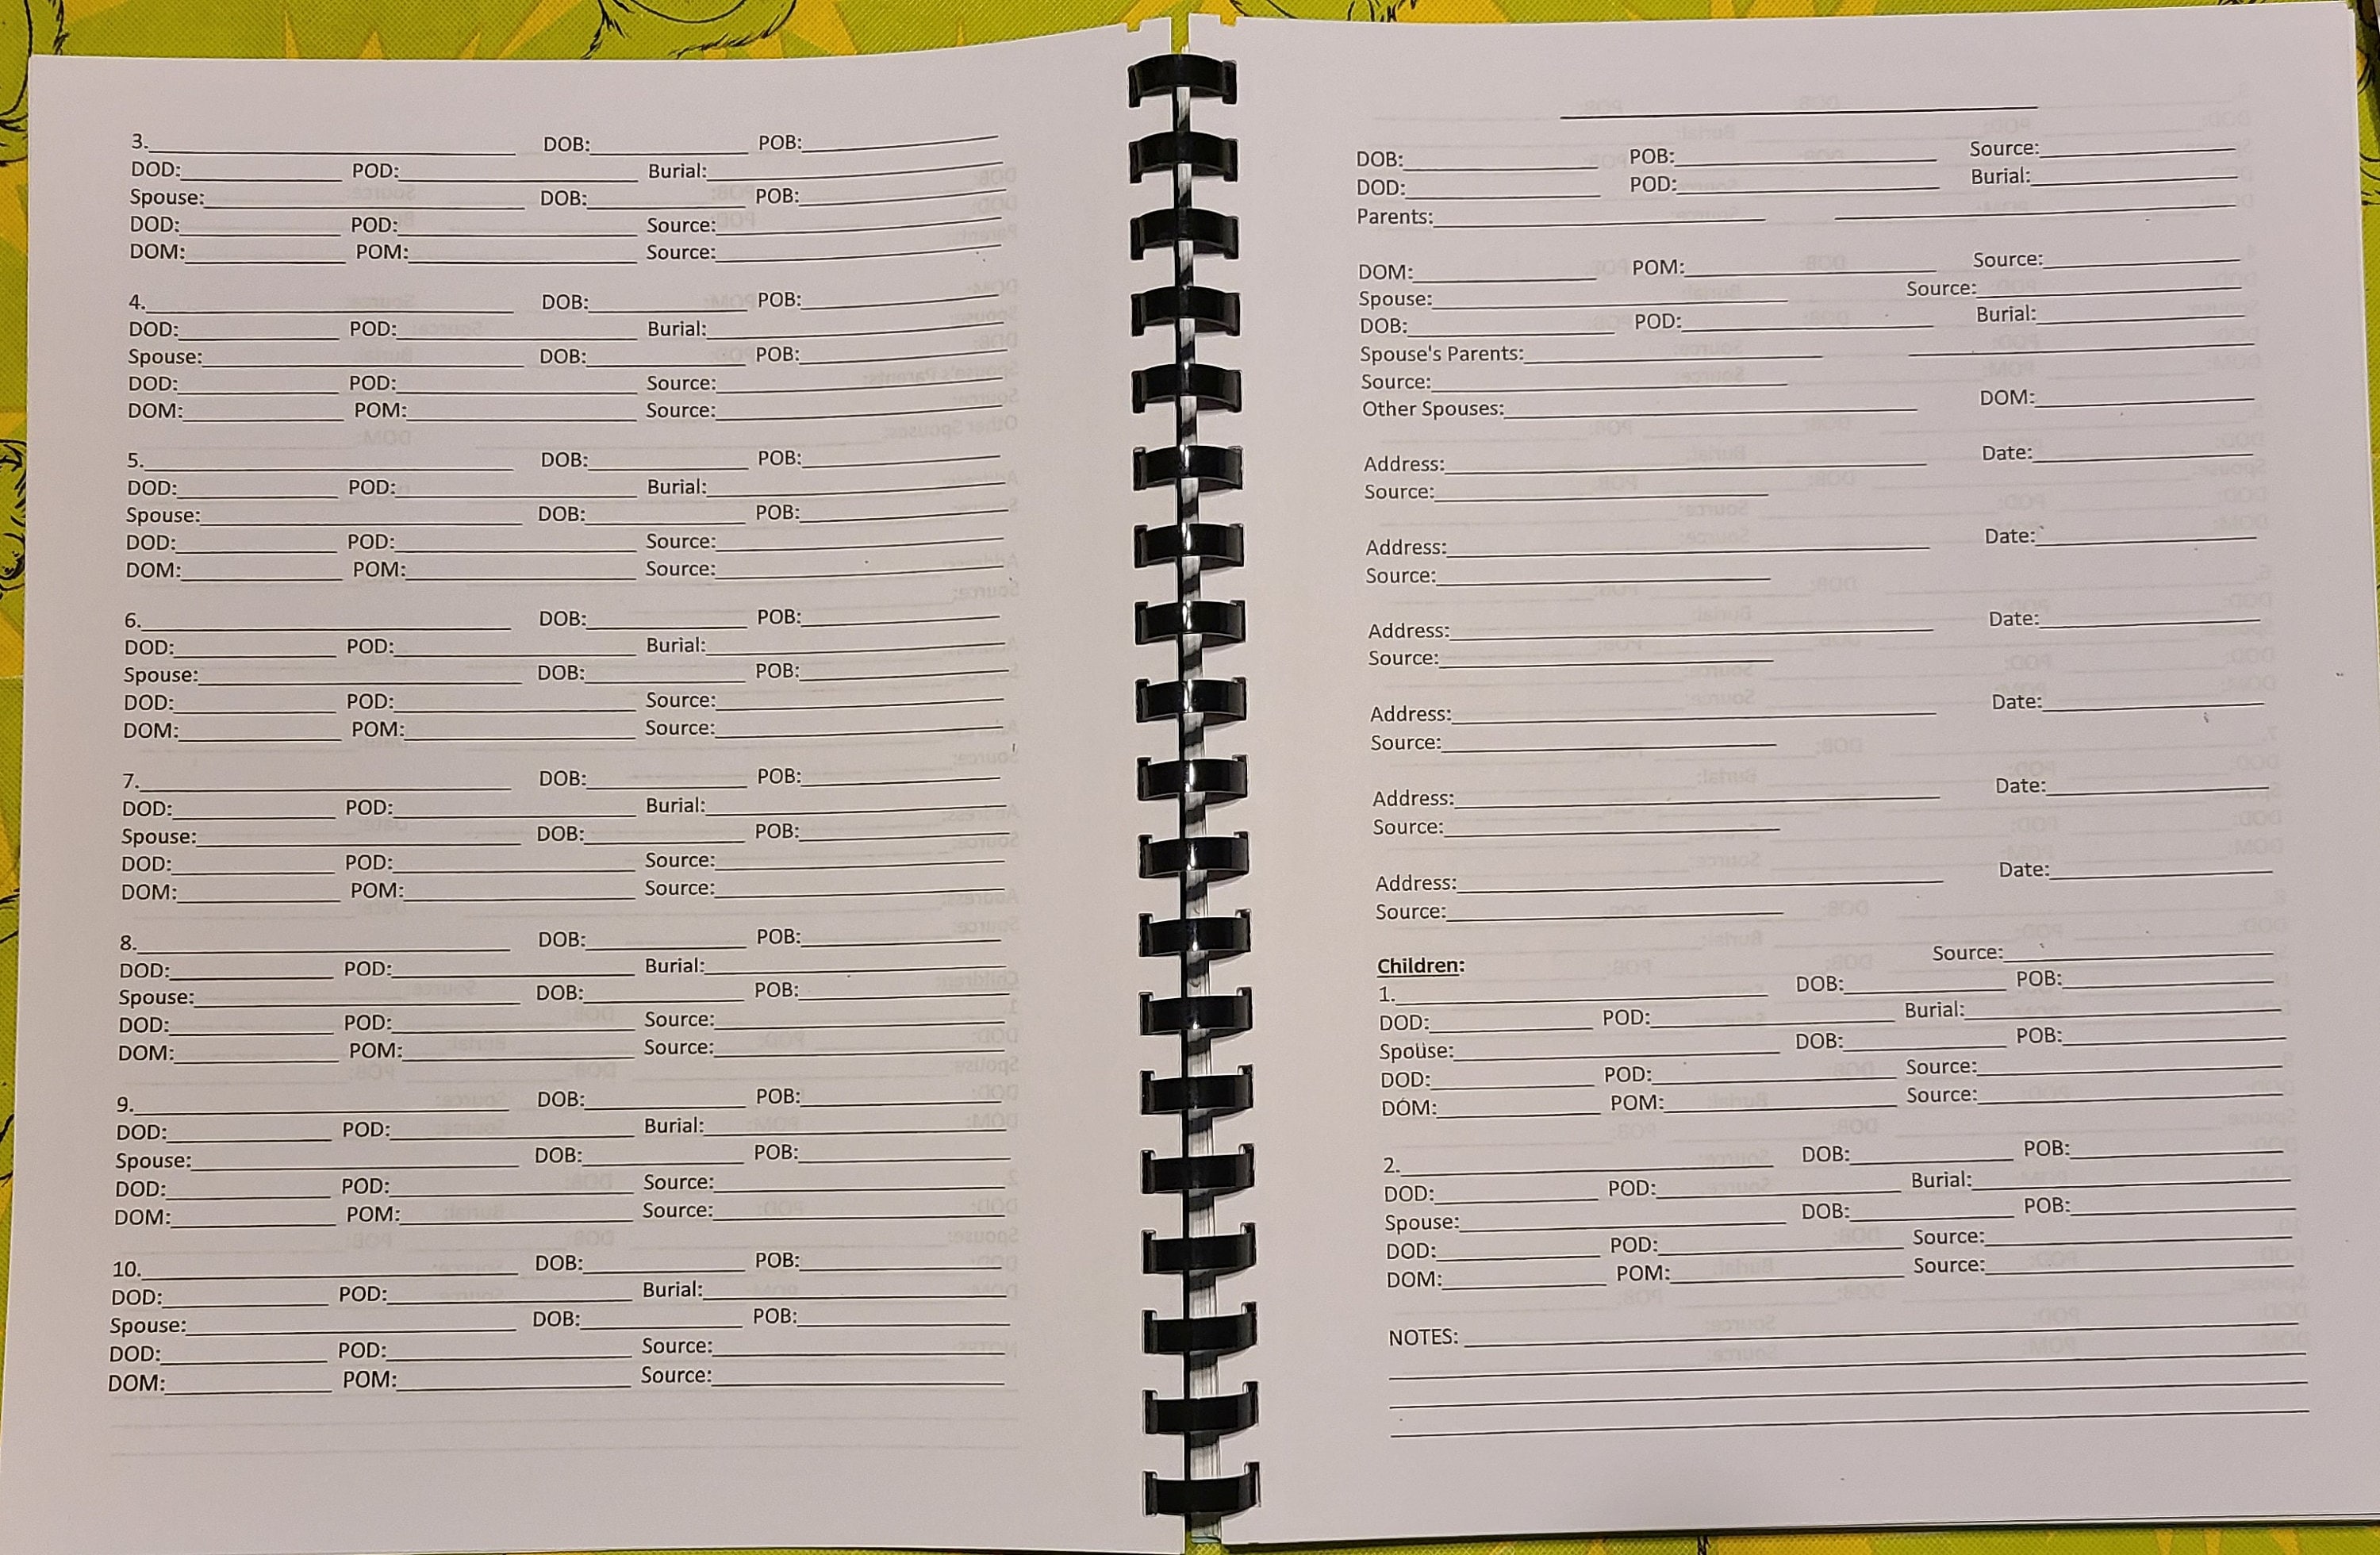 3.____________ DOB:____________ POB:____________
DOD:____________ POD:____________ Burial:____________
Spouse:____________ DOB:____________ POB:____________
DOD:____________ POD:____________ Source:____________
DOM:____________ POM:____________ Source:____________
4.____________ DOB:____________ POB:____________
DOD:____________ POD:____________ Burial:____________
Spouse:____________ DOB:____________ POB:____________
DOD:____________ POD:____________ Source:____________
DOM:____________ POM:____________ Source:____________
5.____________ DOB:____________ POB:____________
DOD:____________ POD:____________ Burial:____________
Spouse:____________ DOB:____________ POB:____________
DOD:____________ POD:____________ Source:____________
DOM:____________ POM:____________ Source:____________
6.____________ DOB:____________ POB:____________
DOD:____________ POD:____________ Burial:____________
Spouse:____________ DOB:____________ POB:____________
DOD:____________ POD:____________ Source:____________
DOM:____________ POM:____________ Source:____________
7.____________ DOB:____________ POB:____________
DOD:____________ POD:____________ Burial:____________
Spouse:____________ DOB:____________ POB:____________
DOD:____________ POD:____________ Source:____________
DOM:____________ POM:____________ Source:____________
8.____________ DOB:____________ POB:____________
DOD:____________ POD:____________ Burial:____________
Spouse:____________ DOB:____________ POB:____________
DOD:____________ POD:____________ Source:____________
DOM:____________ POM:____________ Source:____________
9.____________ DOB:____________ POB:____________
DOD:____________ POD:____________ Burial:____________
Spouse:____________ DOB:____________ POB:____________
DOD:____________ POD:____________ Source:____________
DOM:____________ POM:____________ Source:____________
10.____________ DOB:____________ POB:____________
DOD:____________ POD:____________ Burial:____________
Spouse:____________ DOB:____________ POB:____________
DOD:____________ POD:____________ Source:____________
DOM:____________ POM:____________ Source:____________
DOB:____________ POB:____________ Source:____________
DOD:____________ POD:____________ Burial:____________
Parents:____________ ____________
DOM:____________ POM:____________ Source:____________
Spouse:____________ Source:____________
DOB:____________ POD:____________ Burial:____________
Spouse's Parents:____________ ____________
Source:____________
Other Spouses:____________ DOM:____________
Address:____________ Date:____________
Source:____________
Address:____________ Date:____________
Source:____________
Address:____________ Date:____________
Source:____________
Address:____________ Date:____________
Source:____________
Address:____________ Date:____________
Source:____________
Address:____________ Date:____________
Source:____________
Children: Source:____________
1.____________ DOB:____________ POB:____________
DOD:____________ POD:____________ Burial:____________
Spouse:____________ DOB:____________ POB:____________
DOD:____________ POD:____________ Source:____________
DOM:____________ POM:____________ Source:____________
2.____________ DOB:____________ POB:____________
DOD:____________ POD:____________ Burial:____________
Spouse:____________ DOB:____________ POB:____________
DOD:____________ POD:____________ Source:____________
DOM:____________ POM:____________ Source:____________
NOTES:____________